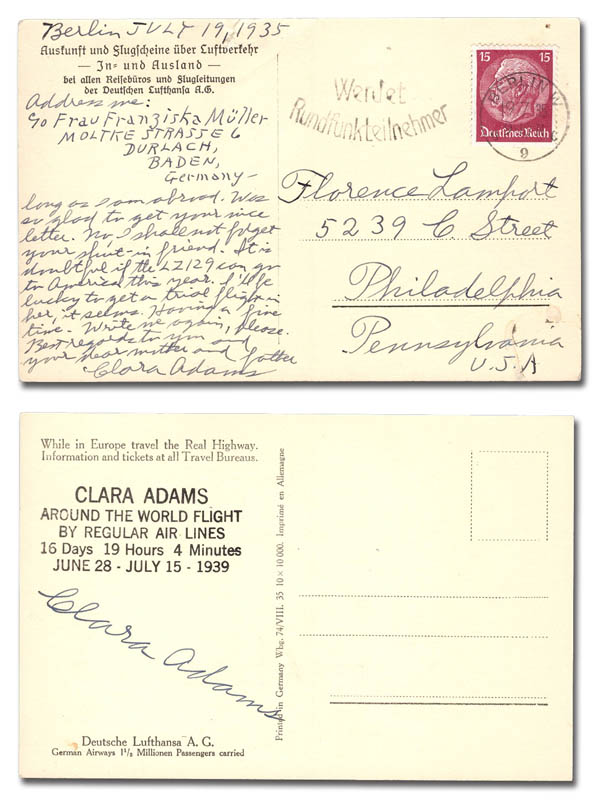 Berlin JULY 19, 1935
Auskunft und Flugscheine über Luftverkehr
— In= und Ausland —
bei allen Reisebüros und Flugleitungen
der Deutschen Lufthansa A.G.
Address me:
c/o Frau Franziska Müller
MOLTKE STRASSE 6
DURLACH,
BADEN,
Germany —
long as I am abroad. Was
so glad to get your nice
letter. No I shall not forget
your shut-in friend. It is
doubtful if the LZ129 can go
to America this year. I'll be
lucky to get a trial flight in
her, it seems. Having a fine
time. Write me again, please.
Best regards to you and
your dear mother and father
Clara Adams
Werdet
Rundfunkteilnehmer
15 15
Deutsches Reich
BERLIN W
9
Florence Lamport
5239 C. Street
Philadelphia
Pennsylvania
U.S.A
While in Europe travel the Real Highway.
Information and tickets at all Travel Bureaus.
CLARA ADAMS
AROUND THE WORLD FLIGHT
BY REGULAR AIR LINES
16 Days 19 Hours 4 Minutes
JUNE 28 - JULY 15 - 1939
Clara Adams
Deutsche Lufthansa A. G.
German Airways 1½ Millionen Passengers carried
Printed in Germany Whg. 74/VIII. 35 10 × 10 000. Imprimé en Allemagne